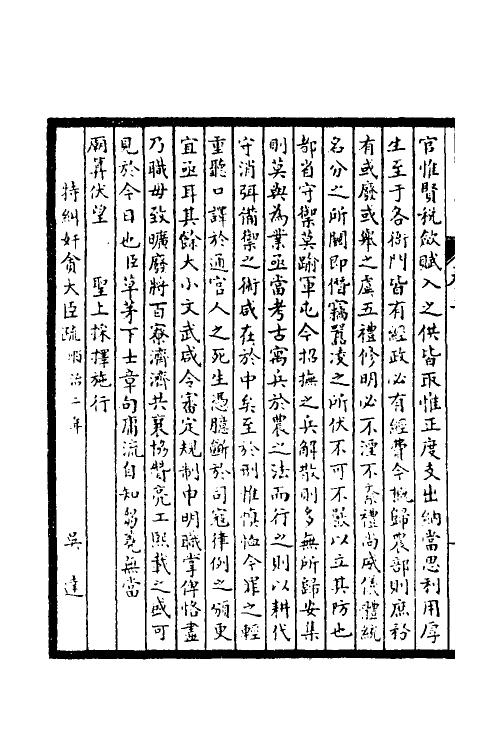 官惟賢稅斂賦入之供皆取惟正度支出納當思利用厚
生至于各衙門皆有經政必有經費今概歸農部則庶務
有或廢或舉之虞五禮修明必不淫不紊禮尚威儀體統
名分之所關即僭竊凌之所伏不可不嚴以立其防也
都省守禦莫踰軍屯今招撫之兵解散則多無所歸安集
則莫與為業亟當考古寓兵於農之法而行之則以耕代
守消弭備禦之術咸在於中矣至於刑惟慎恤今罪之輕
重聽口譯於通官人之死生憑臆斷於司寇律例之頒更
宜亟耳其餘大小文武咸令審定規制申明職掌俾恪盡
乃職毋致曠廢將百寮濟濟共襄協贊亮工熙載之盛可
見於今日也臣草茅下士章句庸流自知芻蕘無當
廟算伏望 聖上採擇施行
特糾奸貪大臣疏 順治二年 吳達